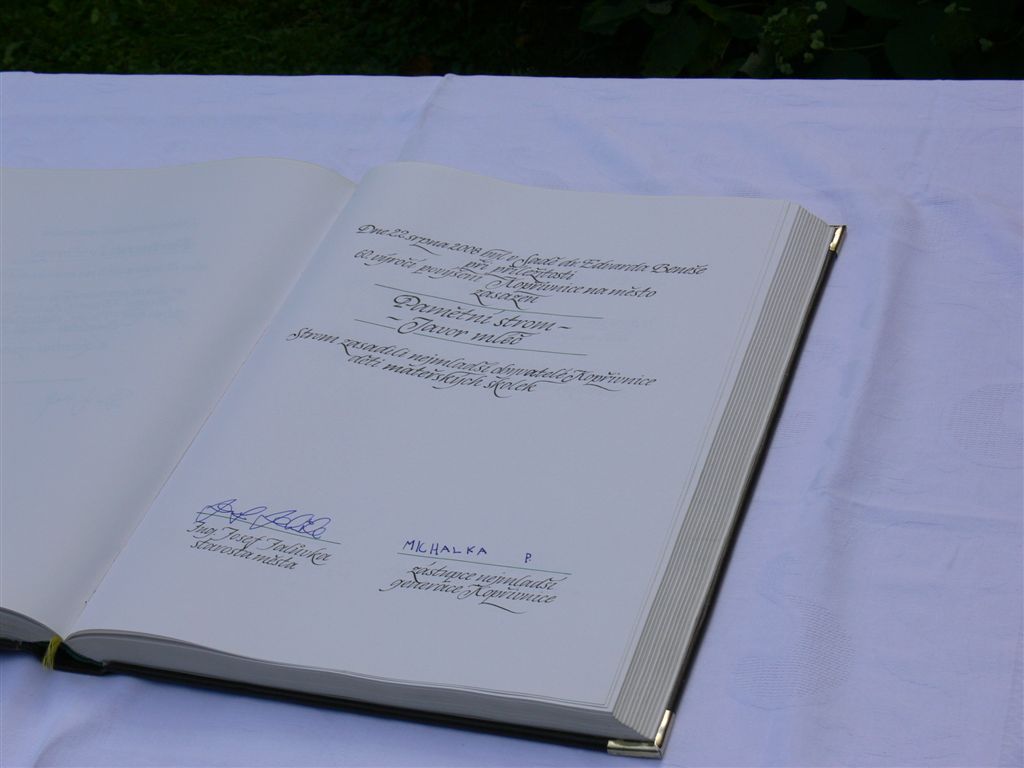 Dne 22. srpna 2008 byl v Sadě dr. Edvarda Beneše
při příležitosti
60. výročí povýšení Kopřivnice na město
zasazen
Pamětní strom -
- Javor mléč
Strom zasadili nejmladší obyvatelé Kopřivnice
děti mateřských školek
Ing. Josef Jalůvka
starosta města
MICHALKA P.
zástupce nejmladší
generace Kopřivnice